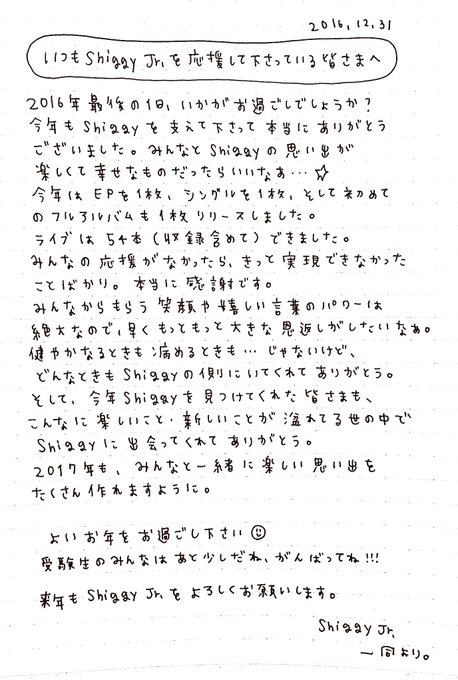 2016.12.31
いつもShiggy Jr.を応援して下さっている皆さまへ
2016年最後の1日、いかがお過ごしでしょうか?
今年もShiggyを支えて下さって本当にありがとう
ございました。みんなとShiggyの思い出が
楽しくて幸せなものだったらいいなぁ…☆
今年はEPを1枚、シングルを1枚、そして初めて
のフルアルバムも1枚リリースしました。
ライブは54本(収録含めて)できました。
みんなの応援がなかったら、きっと実現できなかった
ことばかり。本当に感謝です。
みんなからもらう笑顔や嬉しい言葉のパワーは
絶大なので、早くもっともっと大きな恩返しがしたいなぁ。
健やかなるときも病めるときも…じゃないけど、
どんなときもShiggyの側にいてくれてありがとう。
そして、今年Shiggyを見つけてくれた皆さまも、
こんなに楽しいこと・新しいことが溢れてる世の中で
Shiggyに出会ってくれてありがとう。
2017年も、みんなと一緒に楽しい思い出を
たくさん作れますように。
よいお年をお過ごし下さい☺
受験生のみんなはあと少しだね、がんばってね!!!
来年もShiggy Jr.をよろしくお願いします。
Shiggy Jr.
一同より。